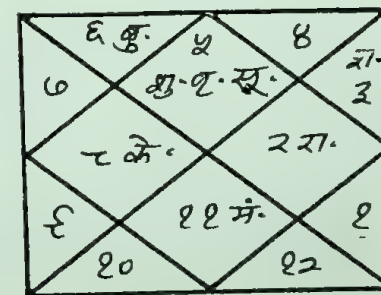 ६ बु. ५ ४
७ शु. बृ. सू. ३
८ के. २ रा.
९ ११ मं. १
१० १२